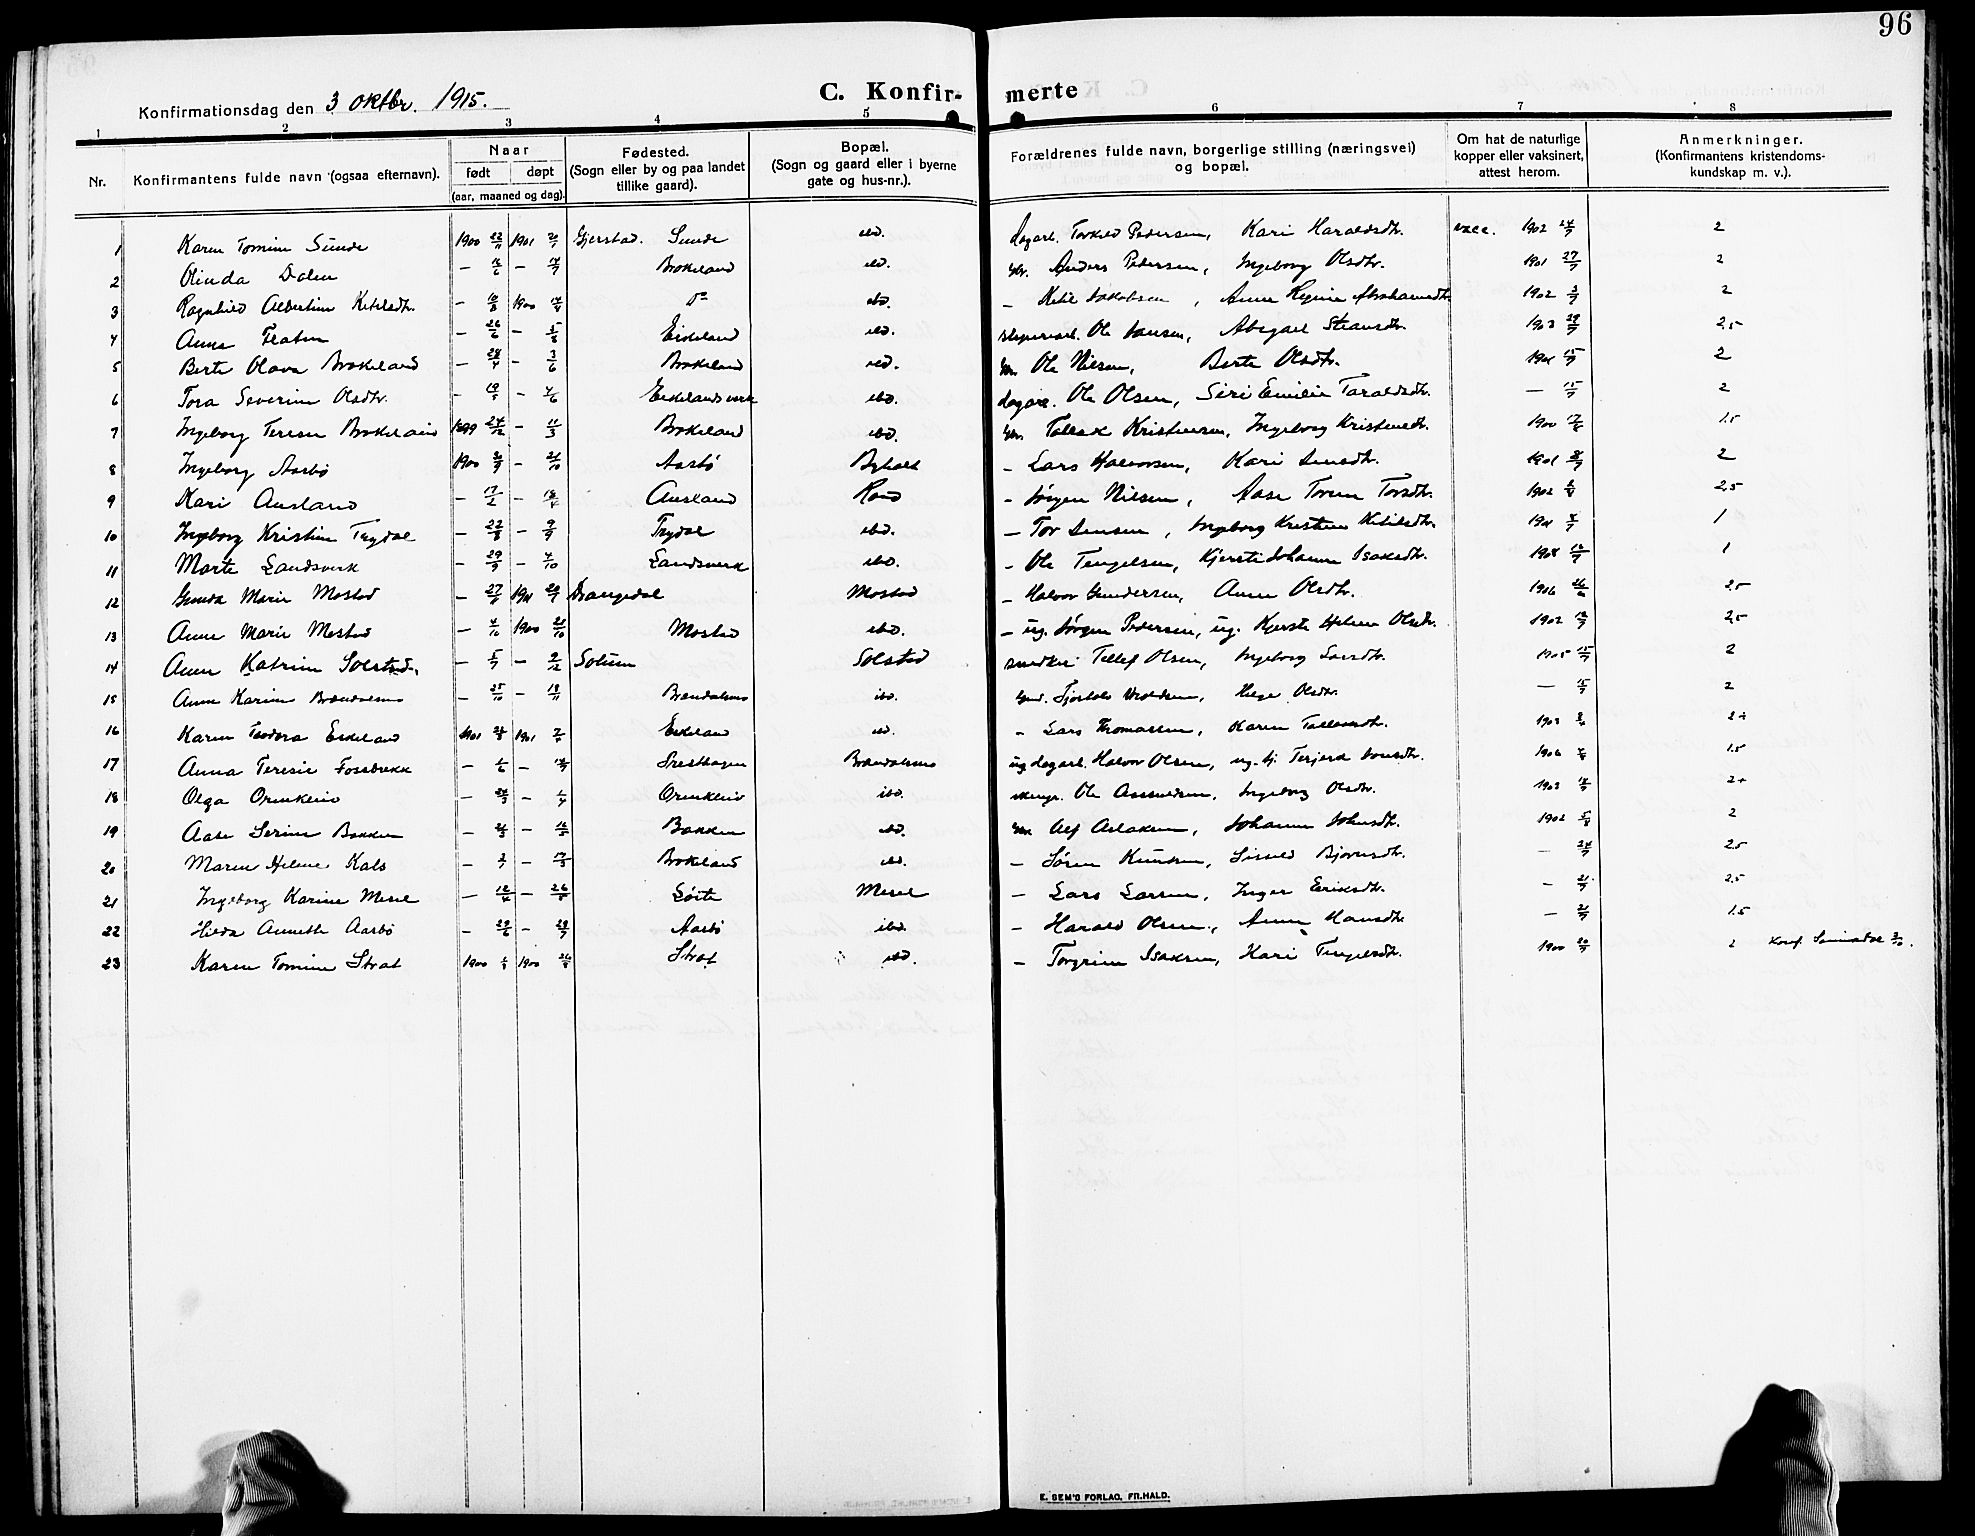 96
C. Konfir- merte
Konfirmationsdag den 3 oktbr. 1915.
1 2 3 4 5 6 7 8
Nr. Konfirmantens fulde navn (ogsaa efternavn). Naar født døpt (aar, maaned og dag). Fødested. (Sogn eller by og paa landet tillike gaard). Bopæl. (Sogn og gaard eller i byerne gate og hus-nr.). Forældrenes fulde navn, borgerlige stilling (næringsvei) og bopæl. Om hat de naturlige kopper eller vaksinert, attest herom. Anmerkninger. (Konfirmantens kristendoms-kundskap m. v.).
1 Karen Tomine Sunde 1900 22/11 1901 20/1 Gjerstad. Sunde ibd. Dagarb. Torkild Pedersen, Kari Haraldsdtr. vacc. 1902 24/7 2
2 Olinda Dalen — 16/6 — 14/7 Brokeland ibd. Gbr. Anders Pedersen, Ingeborg Olsdtr. 1901 27/7 2
3 Ragnhild Albertine Ketilsdtr. — 10/8 1900 Do ibd. — Ketil Jakobsen, Anne Regine Abrahamsdtr. 1902 3/7 2
4 Anna Flaten — 26/6 — 5/8 Eikeland ibd. Ole Jansen, Abigael 1903 29/7 2,5
5 Berte Olava Brokeland — 28/4 — 3/6 Brokeland ibd. Gbr. Ole Nilsen, Berte Olsdtr. 1901 15/7 2
6 Tora Severine Olsdtr. — 19/5 — 4/6 Eikelandsverk ibd. dagarb. Ole Olsen, Siri Emilie Taraldsdtr. — 15/7 2
7 Ingeborg Terese Brokeland 1899 24/12 — 11/3 Brokeland ibd. Gbr. Tallak Kristensen, Ingeborg Kristensdtr. 1900 1.5
8 Ingeborg Aasbø 1900 — 21/10 Aasbø Byholt — Lars Halvorsen, Kari Jensdtr. 1901 2
9 Kari Ausland — 17/2 — Ausland Rød — Jørgen Nilsen, Aase Torine Torsdtr. 1902 2,5
10 Ingeborg Kristine Trydal — 22/8 — 9/9 Trydal ibd. — Tor Jensen, Ingeborg Kristine Ketilsdtr. 1901 4/7 1
11 Marte Landsverk — 29/9 — 4/10 Landsverk ibd. — Ole Tengelsen, Kjersti Johanne Isaksdtr. 1
12 Gunda Marie Mostad — 27/11 1901 20/1 Drangedal Mostad — Halvor Gundersen, Anne Olsdtr. 1906 2.5
13 Anne Marie Mostad — 4/10 1900 21/10 Mostad ibd. — ug. Jørgen Pedersen, ug. Kjerste Helene Olsdtr. 1902 2,5
14 Anne Katrine Solstad. — 5/7 — 9/12 Solum Solstad snedker Tellef Olsen, Ingeborg Larsdtr. 1905 15/7 2
15 Anne Karine Brændalsmo — 25/10 — 18/11 Brændalsmo ibd. Olsdtr. — 15/7 2
16 Karen Teodora Eikeland 1901 1901 Eikeland ibd. — Lars Thomassen, Karen Tallaksdtr. 1903 2+
17 Anna Teresie Fossbekk — 1/6 — Brændalsmo ug dagarb. Halvor Olsen, ug. 1906 1.5
18 Olga Ormkleiv — — 1/4 Ormkleiv ibd. Ole Olsdtr. 1903 2+
19 Aase Serine Bakken — — Bakken ibd. Gbr. Alf Aslaksen, Johanne Johnsdtr. 1902 2
20 Maren Helene Kals — — Brokeland ibd. — Søren Knutsen, Sissel Bjørnsdtr. — 24/7 2.5
21 Ingeborg Karine Mesel — 12/4 — 26/5 Løite Mesel — Lars Larsen, Inger Eriksdtr. — 21/7 2,5
22 Hilda Annette Aasbø — 29/6 — 28/7 Aasbø ibd. — Harald Olsen, Anne Hansdtr. — 21/7 1.5
23 Karen Tomine Strat 1900 1900 Strat ibd. — Torgrim Isaksen, Kari Tengelsdtr. 1900 2 Konf.
E. SEM'S FORLAG, FR.HALD.